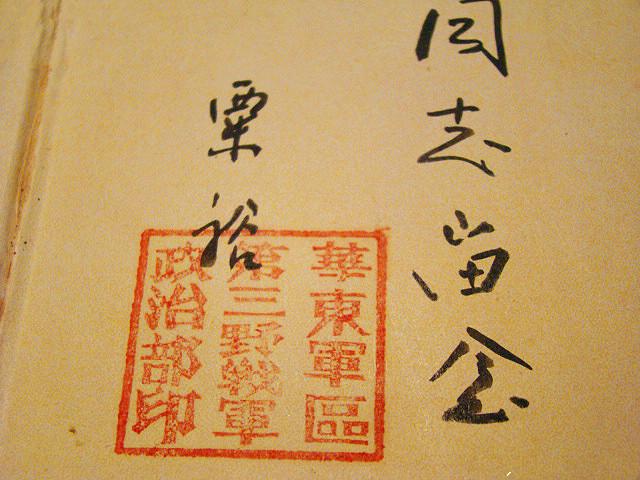 同志留念
粟裕
華東軍區
第三野戰軍
政治部印